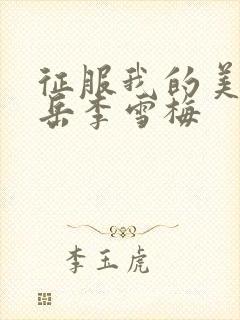 征服我的美
岳李雪梅
李玉虎